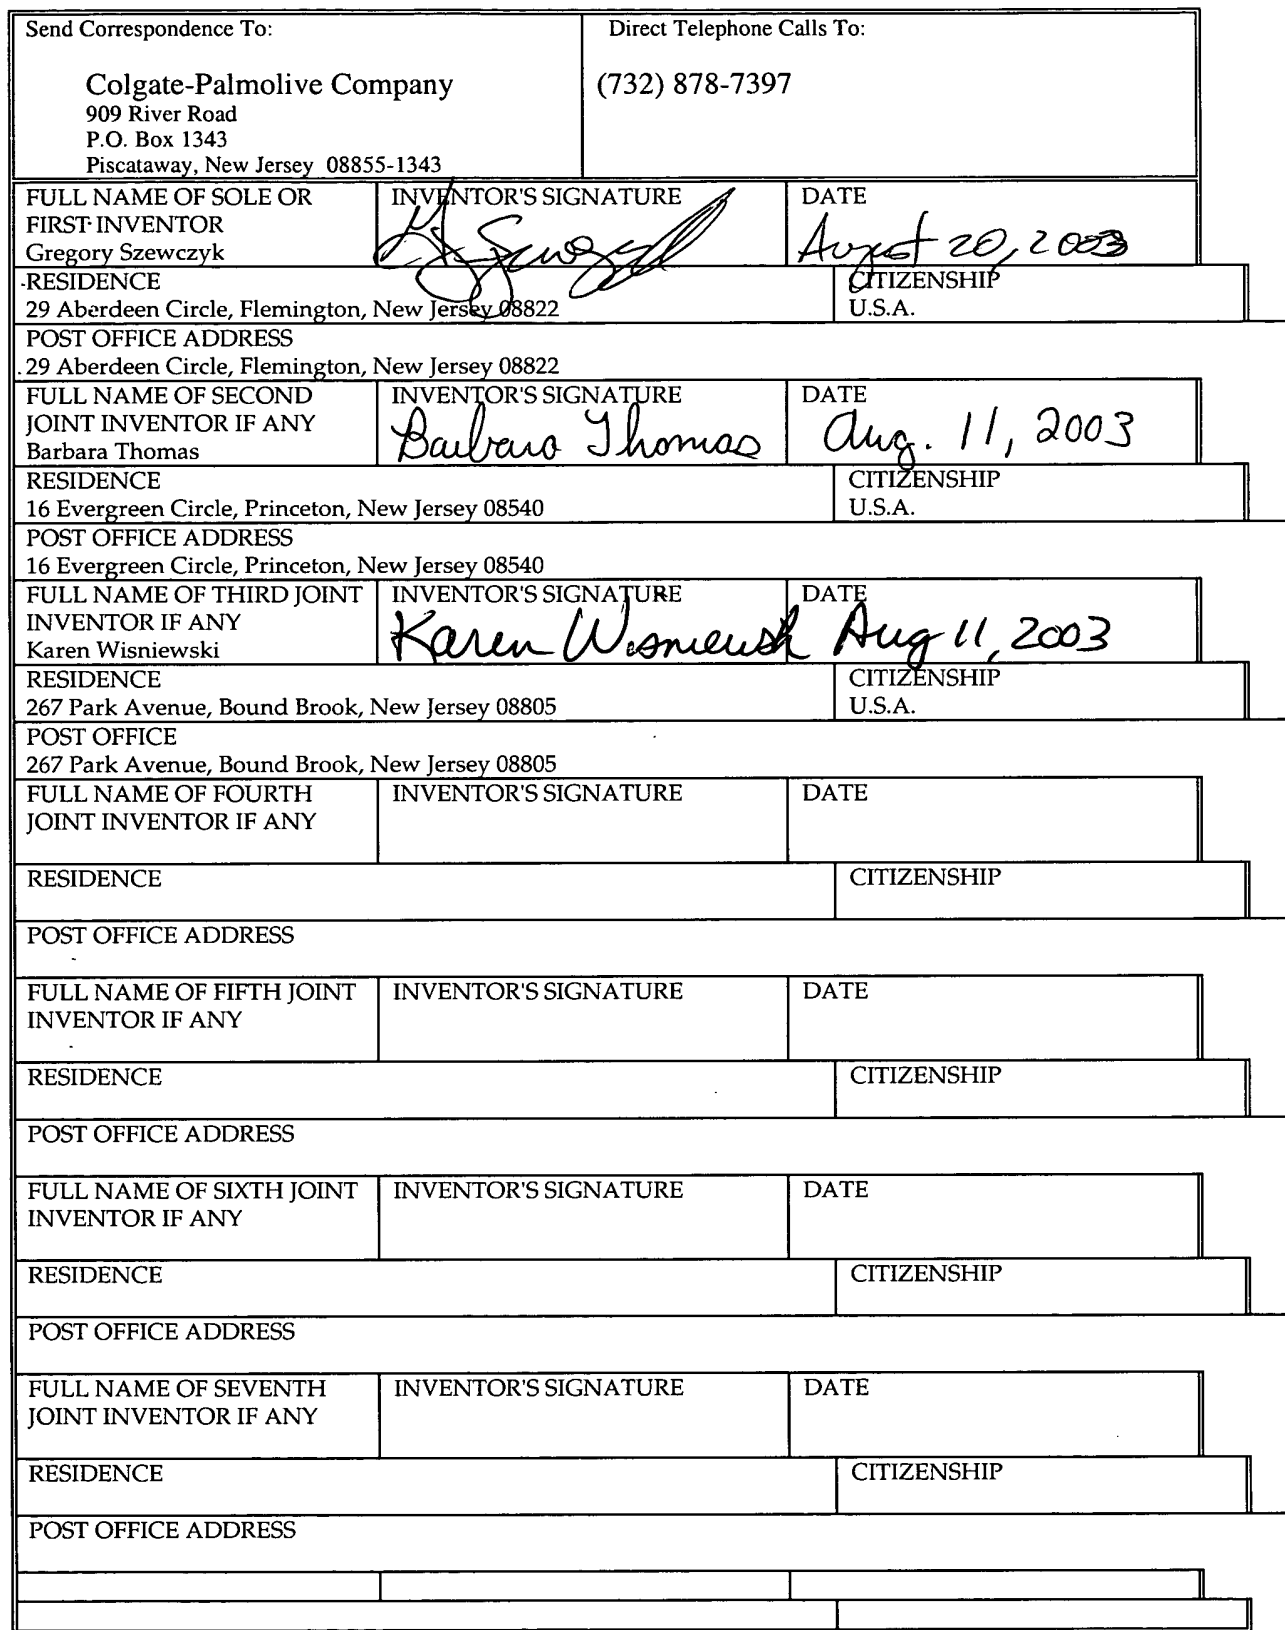 Send Correspondence To:
Direct Telephone Calls To:
Colgate-Palmolive Company
(732) 878-7397
909 River Road
P.O. Box 1343
Piscataway, New Jersey 08855-1343
FULL NAME OF SOLE OR
FIRST INVENTOR
Gregory Szewczyk
INVENTOR'S SIGNATURE
DATE
August 20, 2003
RESIDENCE
29 Aberdeen Circle, Flemington, New Jersey 08822
CITIZENSHIP
U.S.A.
POST OFFICE ADDRESS
29 Aberdeen Circle, Flemington, New Jersey 08822
FULL NAME OF SECOND
JOINT INVENTOR IF ANY
Barbara Thomas
INVENTOR'S SIGNATURE
Barbara Thomas
DATE
Aug. 11, 2003
RESIDENCE
16 Evergreen Circle, Princeton, New Jersey 08540
CITIZENSHIP
U.S.A.
POST OFFICE ADDRESS
16 Evergreen Circle, Princeton, New Jersey 08540
FULL NAME OF THIRD JOINT
INVENTOR IF ANY
Karen Wisniewski
INVENTOR'S SIGNATURE
Karen Wisniewski
DATE
Aug 11, 2003
RESIDENCE
267 Park Avenue, Bound Brook, New Jersey 08805
CITIZENSHIP
U.S.A.
POST OFFICE
267 Park Avenue, Bound Brook, New Jersey 08805
FULL NAME OF FOURTH
JOINT INVENTOR IF ANY
INVENTOR'S SIGNATURE
DATE
RESIDENCE
CITIZENSHIP
POST OFFICE ADDRESS
FULL NAME OF FIFTH JOINT
INVENTOR IF ANY
INVENTOR'S SIGNATURE
DATE
RESIDENCE
CITIZENSHIP
POST OFFICE ADDRESS
FULL NAME OF SIXTH JOINT
INVENTOR IF ANY
INVENTOR'S SIGNATURE
DATE
RESIDENCE
CITIZENSHIP
POST OFFICE ADDRESS
FULL NAME OF SEVENTH
JOINT INVENTOR IF ANY
INVENTOR'S SIGNATURE
DATE
RESIDENCE
CITIZENSHIP
POST OFFICE ADDRESS